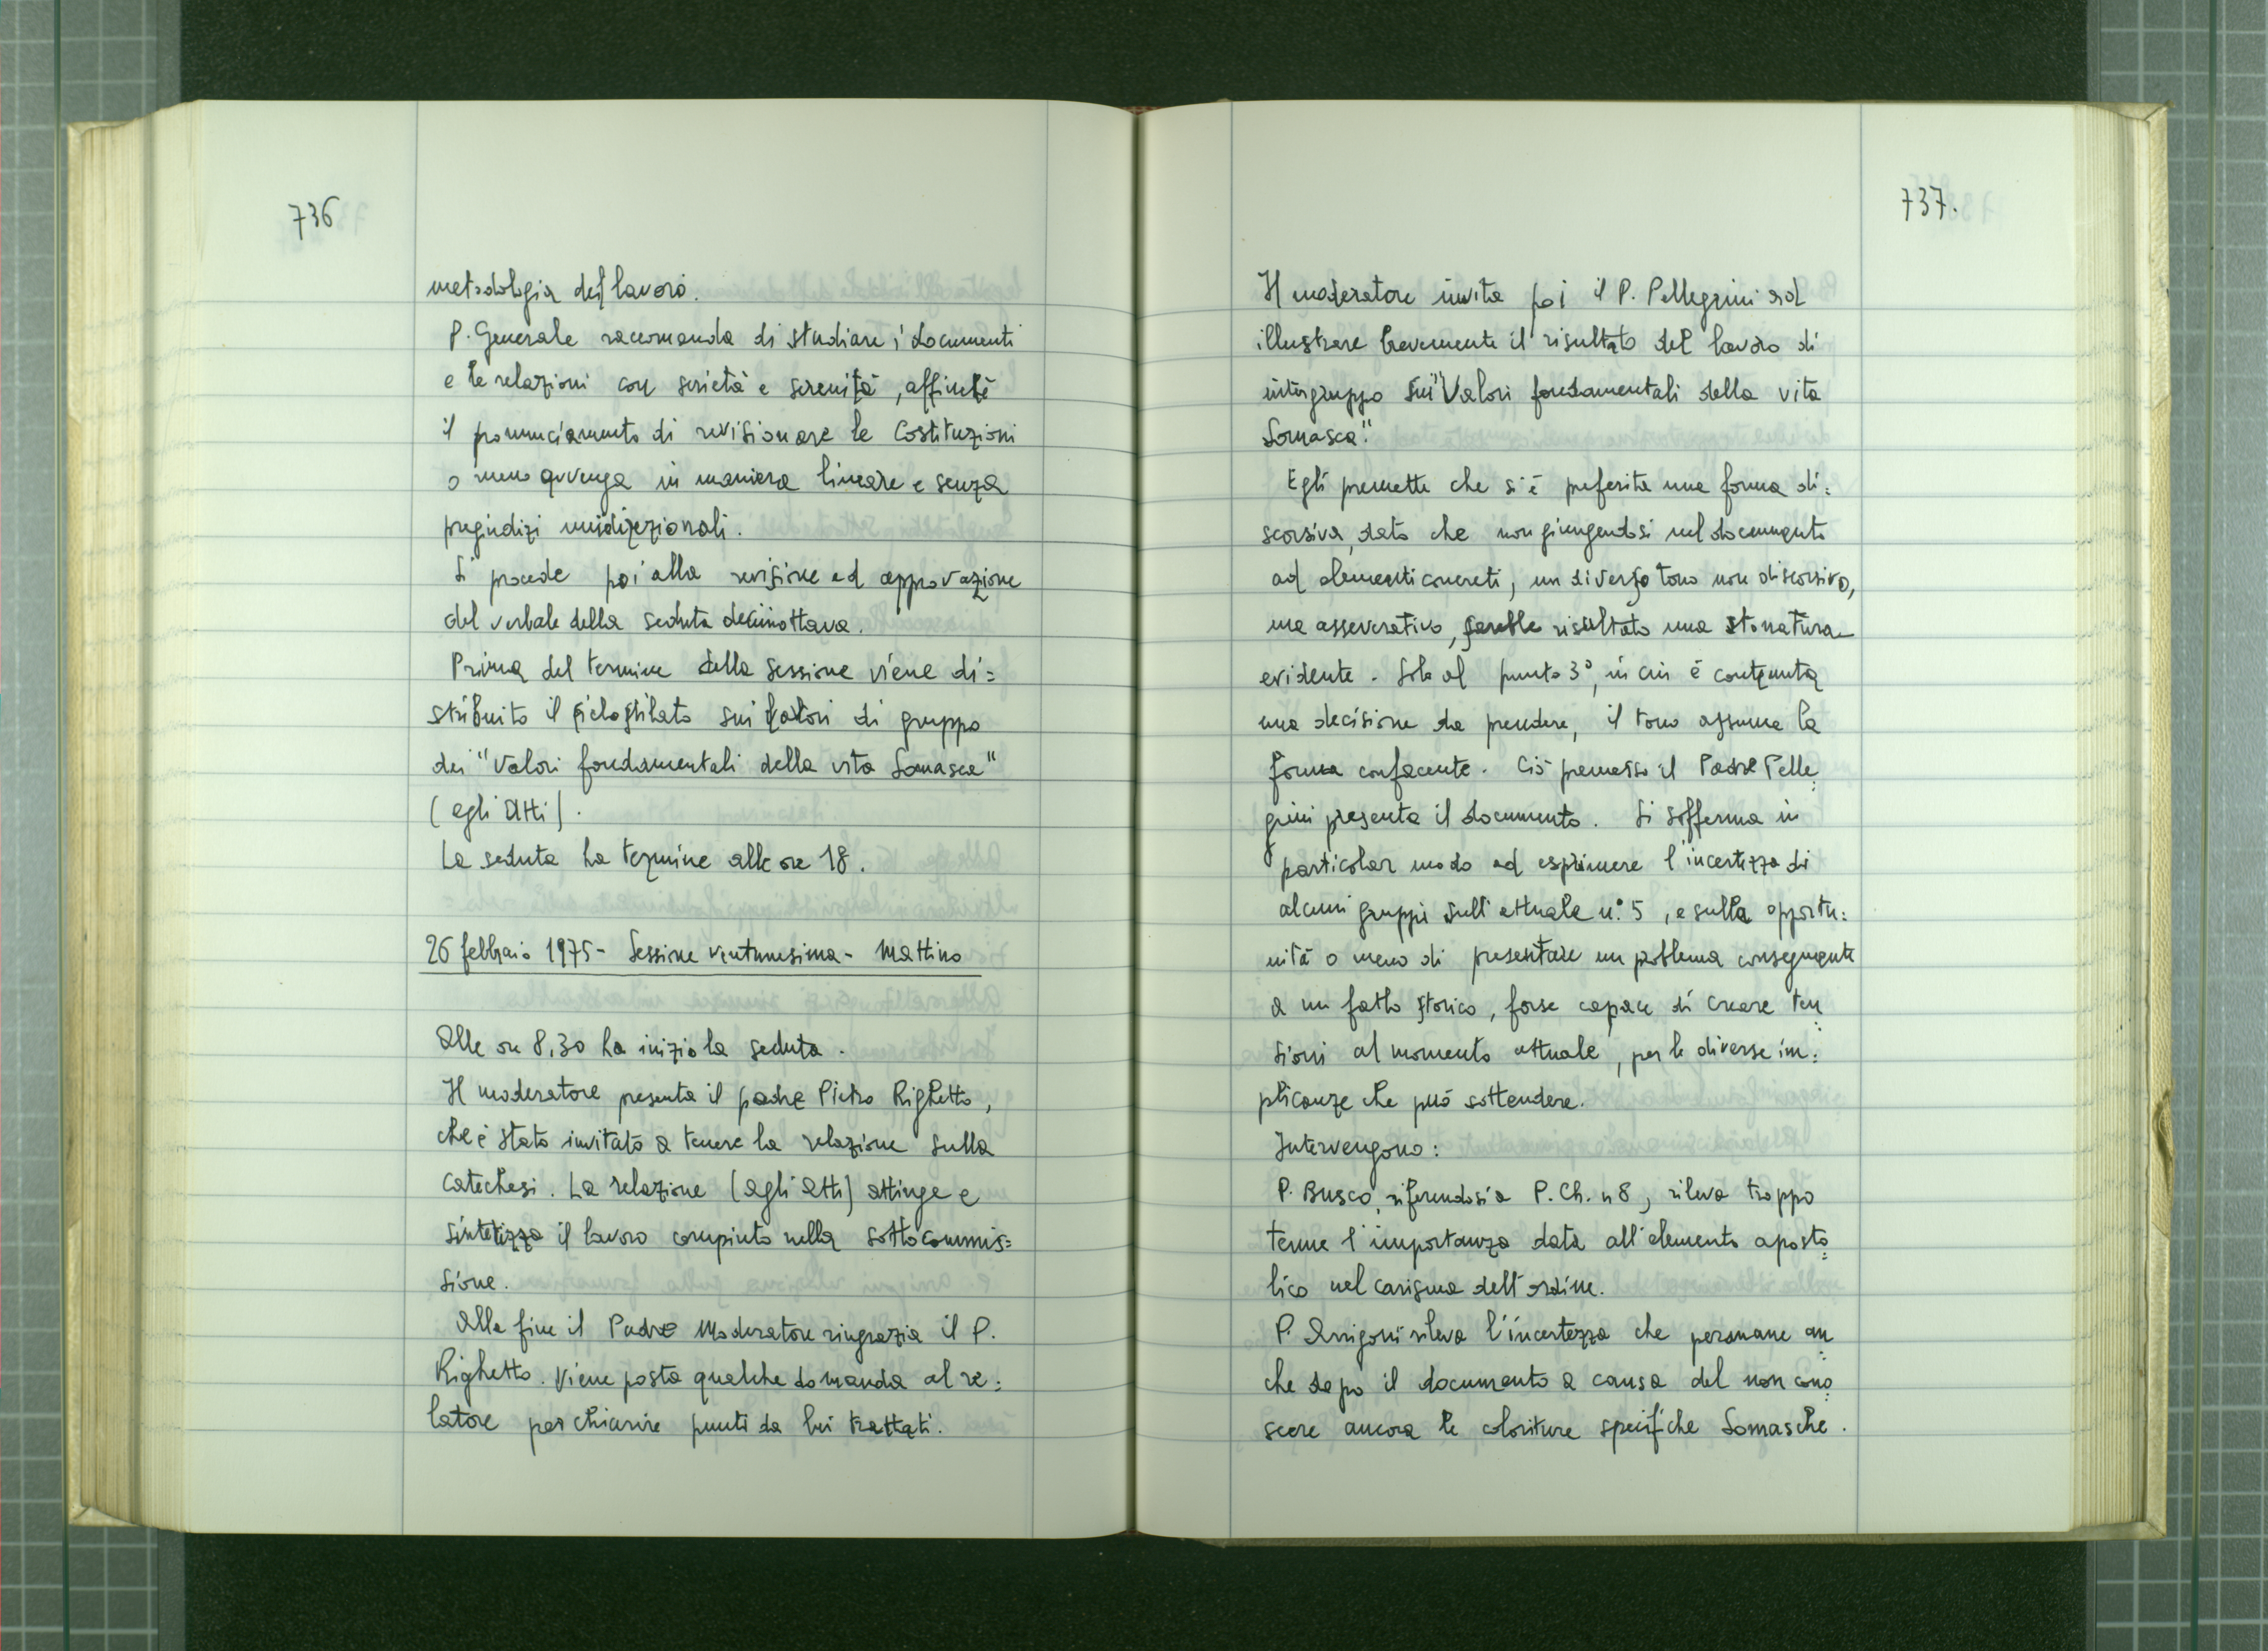 736
metodologia del lavoro.
P. Generale raccomanda di studiare i documenti
e le relazioni con serietà e serenità, affinché
il pronunciamento di revisionare le Costituzioni
o meno avvenga in maniera lineare e senza
pregiudizi unidirezionali.
Si procede poi alla revisione ed approvazione
del verbale della seduta decimottava.
Prima del termine della sessione viene di=
stribuito il ciclostilato sui valori di gruppo
dei "Valori fondamentali della vita Somasca"
(agli Atti).
La seduta ha termine alle ore 18.
26 febbraio 1975 - Sessione ventunesima - Mattino
Alle ore 8,30 ha inizio la seduta.
Il moderatore presenta il padre Pietro Righetto,
che è stato invitato a tenere la relazione sulla
catechesi. La relazione (agli atti) attinge e
sintetizza il lavoro compiuto nella sottocommis=
sione.
Alla fine il Padre Moderatore ringrazia il P.
Righetto. Viene posta qualche domanda al re=
latore per chiarire punti da lui trattati.
737.
Il moderatore invita poi il P. Pellegrini ad
illustrare brevemente il risultato del lavoro di
intergruppo sui "Valori fondamentali della vita
Somasca".
Egli premette che si è preferita una forma di=
scorsiva, dato che non giungendosi nel documento
ad elementi concreti, un diverso tono non discorsivo,
ma asseverativo, sarebbe risultato una stonatura
evidente. Solo al punto 3°, in cui è contenuta
una decisione da prendere, il tono assume la
forma confacente. Ciò premesso il Padre Pelle=
grini presenta il documento. Si sofferma in
particolar modo ad esprimere l'incertezza di
alcuni gruppi sull'attuale n.° 5, e sulla opportu=
nità o meno di presentare un problema conseguente
a un fatto storico, forse capace di creare ten=
sioni al momento attuale, per le diverse im=
plicanze che può sottendere.
Intervengono:
P. Busco, riferendosi a P. Ch. n 8, rileva troppo
tenue l'importanza data all'elemento aposto=
lico nel carisma dell'ordine.
P. Arrigoni rileva l'incertezza che permane an=
che dopo il documento a causa del non cono=
scere ancora le coloriture specifiche Somasche.